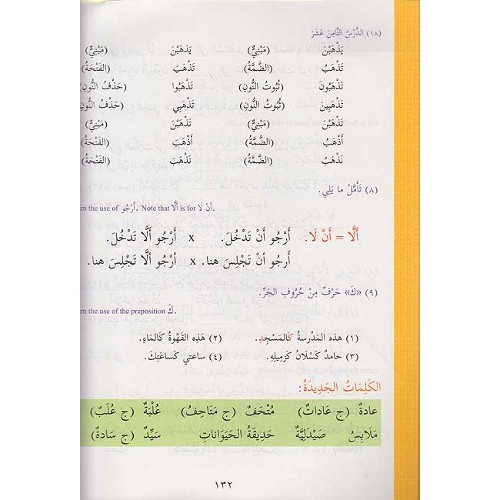 (١٨) الدَّرْسُ الثَّامِنَ عَشَرَ
يَذْهَبْنَ (مَبْنِيٌّ) يَذْهَبْنَ (مَبْنِيٌّ)
تَذْهَبُ (الضَّمَّةُ) تَذْهَبَ (الفَتْحَةُ)
تَذْهَبُونَ (ثُبُوتُ النُّونِ) تَذْهَبُوا (حَذْفُ النُّونِ)
تَذْهَبِينَ (ثُبُوتُ النُّونِ) تَذْهَبِي (حَذْفُ النُّونِ)
تَذْهَبْنَ (مَبْنِيٌّ) تَذْهَبْنَ (مَبْنِيٌّ)
أَذْهَبُ (الضَّمَّةُ) أَذْهَبَ (الفَتْحَةُ)
نَذْهَبُ (الضَّمَّةُ) نَذْهَبَ (الفَتْحَةُ)
(٨) تَأَمَّلْ ما يَلِي.
the use of أَرْجُو. Note that أَلَّا is for أَنْ لَا.
أَلَّا = أَنْ لَا. أَرْجُو أَنْ تَدْخُلَ. x أَرْجُو أَلَّا تَدْخُلَ.
أَرجُو أنْ تَجْلِسَ هنا. x أَرْجُو ألَّا تَجْلِسَ هنا.
(٩) «كَ» حَرْفٌ مِنْ حُرُوفِ الجَرِّ.
the use of the preposition كَ.
(١) هذه المَدْرسةُ كَالمَسْجِدِ. (٢) هَذِهِ القَهْوَةُ كَالمَاءِ.
(٣) حامدٌ كَسْلَان كَزَمِيلِهِ. (٤) ساعتي كَسَاعَتِكَ.
الكَلِمَاتُ الجَدِيدَةُ:
عادةٌ (ج عَادَاتٌ) مُتْحَفٌ (ج مَتَاحِفُ) عُلْبَةٌ (ج عُلَبٌ)
مَلَابِسُ صَيْدَلِيَّةٌ حَدِيقَةُ الحَيَوَانَاتِ سَيِّدٌ (ج سَادَةٌ)
١٣٢